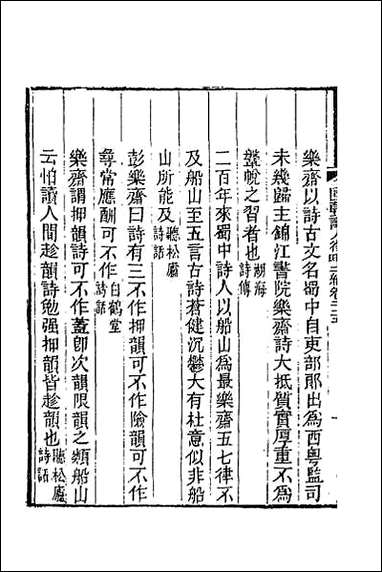 國朝詩人徵略二編卷三十五
樂齋以詩古文名蜀中自吏部郎出爲西粵監司
未幾歸主錦江書院樂齋詩大抵質實厚重不爲
鞶帨之習者也湖海詩傳
二百年來蜀中詩人以船山爲最樂齋五七律不
及船山至五言古詩蒼健沉鬱大有杜意似非船
山所能及聽松廬詩話
彭樂齋曰詩有三不作押韻可不作險韻可不作
尋常應酬可不作白鶴堂詩話
樂齋謂押韻詩可不作蓋卽次韻限韻之類船山
云怕讀人間趁韻詩勉强押韻皆趁韻也聽松廬詩話